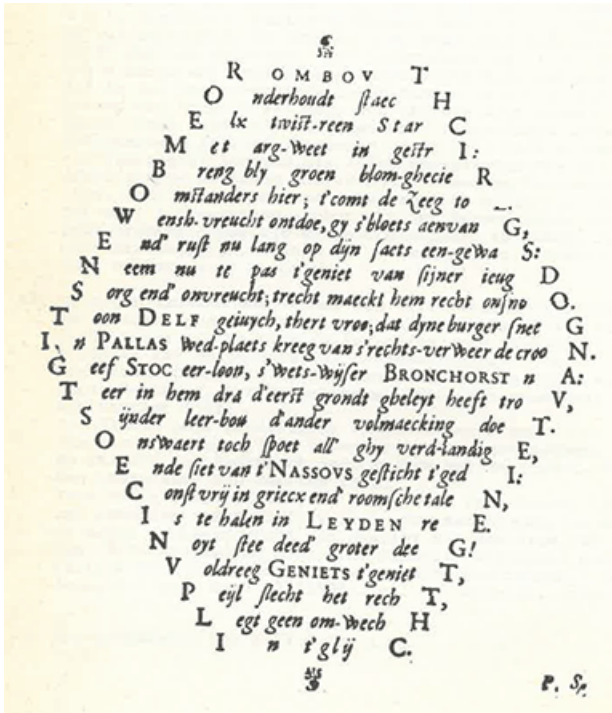 R OMBOV T
O nderhoudt staec H
E lx twist-reen Star C
M et arg-weet in gestr I:
B reng bly groen blom-ghecie R
O mstanders hier; t'comt de Zeeg to _.
W ensh-vreucht ontdoe, gy s'bloets aenvan G,
E nd' rust nu lang op dijn saets een-gewa S:
N eem nu te pas t'geniet van sijner ieug D
S org end' onvreucht; trecht maeckt hem recht onsno O.
T oon DELF geiuych, thert vroo; dat dyne burger snee G
I, n PALLAS wed-plaets kreeg van s'rechts-verweer de croo N.
G eef STOC eer-loon, s'wets-wijser BRONCHORST n A:
T eer in hem dra d'eerst grondt gheleyt heeft tro V,
S ijnder leer-bou d'ander volmaecking doe T.
O nswaert toch spoet all' ghy verd-landig E,
E nde siet van t'NASSOVS gesticht t'ged I:
C onst vrij in griecx end' roomsche tale N,
I s te halen in LEYDEN re E.
N oyt stee deed' groter dee G!
V oldreeg GENIETS t'geniet T,
P eijl slecht het rech T,
L egt geen om-wech H
I n t'glij C.
P. S.